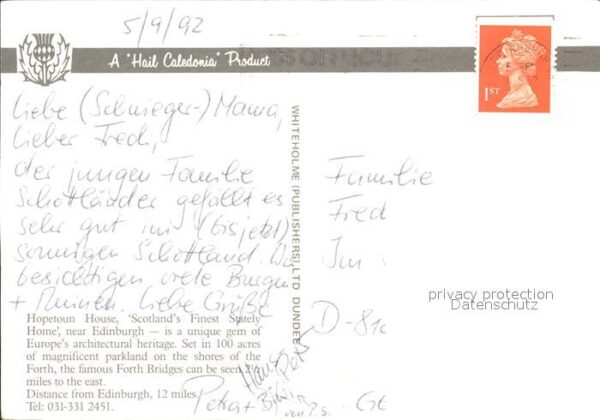 5/9/92
A "Hail Caledonia" Product
1ST
Liebe (Schwieger-) Mama,
lieber Fredi,
der jungen Familie
Schottländer gefällt es
sehr gut im (bisjetzt)
sonnigen Schottland. Wir
besichtigen viele Burgen
+ Ruinen. Liebe Grüße
Hopetoun House, 'Scotland's Finest Stately
Home', near Edinburgh — is a unique gem of
Europe's architectural heritage. Set in 100 acres
of magnificent parkland on the shores of the
Forth, the famous Forth Bridges can be seen 2½
miles to the east.
Distance from Edinburgh, 12 miles.
Tel: 031-331 2451.
Petra +
von P.S.
WHITEHOLME (PUBLISHERS) LTD DUNDEE
Familie
Fred
Im
D-81
Ge
privacy protection
Datenschutz